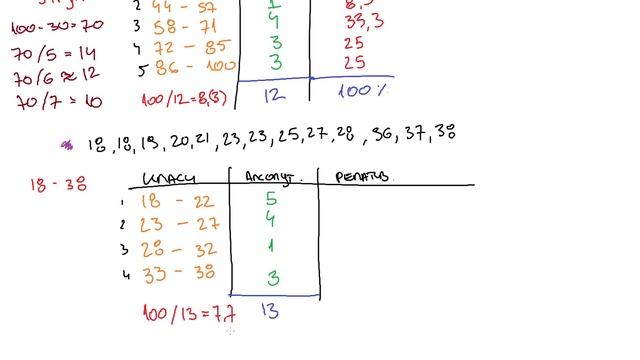 100-30=70
70/5 = 14
70/6 ≈ 12
70/7 = 10
2 44 - 57 1 8,3
3 58 - 71 4 33,3
4 72 - 85 3 25
5 86 - 100 3 25
100/12=8,(3) 12 100%
18, 18, 19, 20, 21, 23, 23, 25, 27, 28, 36, 37, 38
18 - 38
класи апсолут. релатив.
1 18 - 22 5
2 23 - 27 4
3 28 - 32 1
4 33 - 38 3
100/13 = 7,7 13